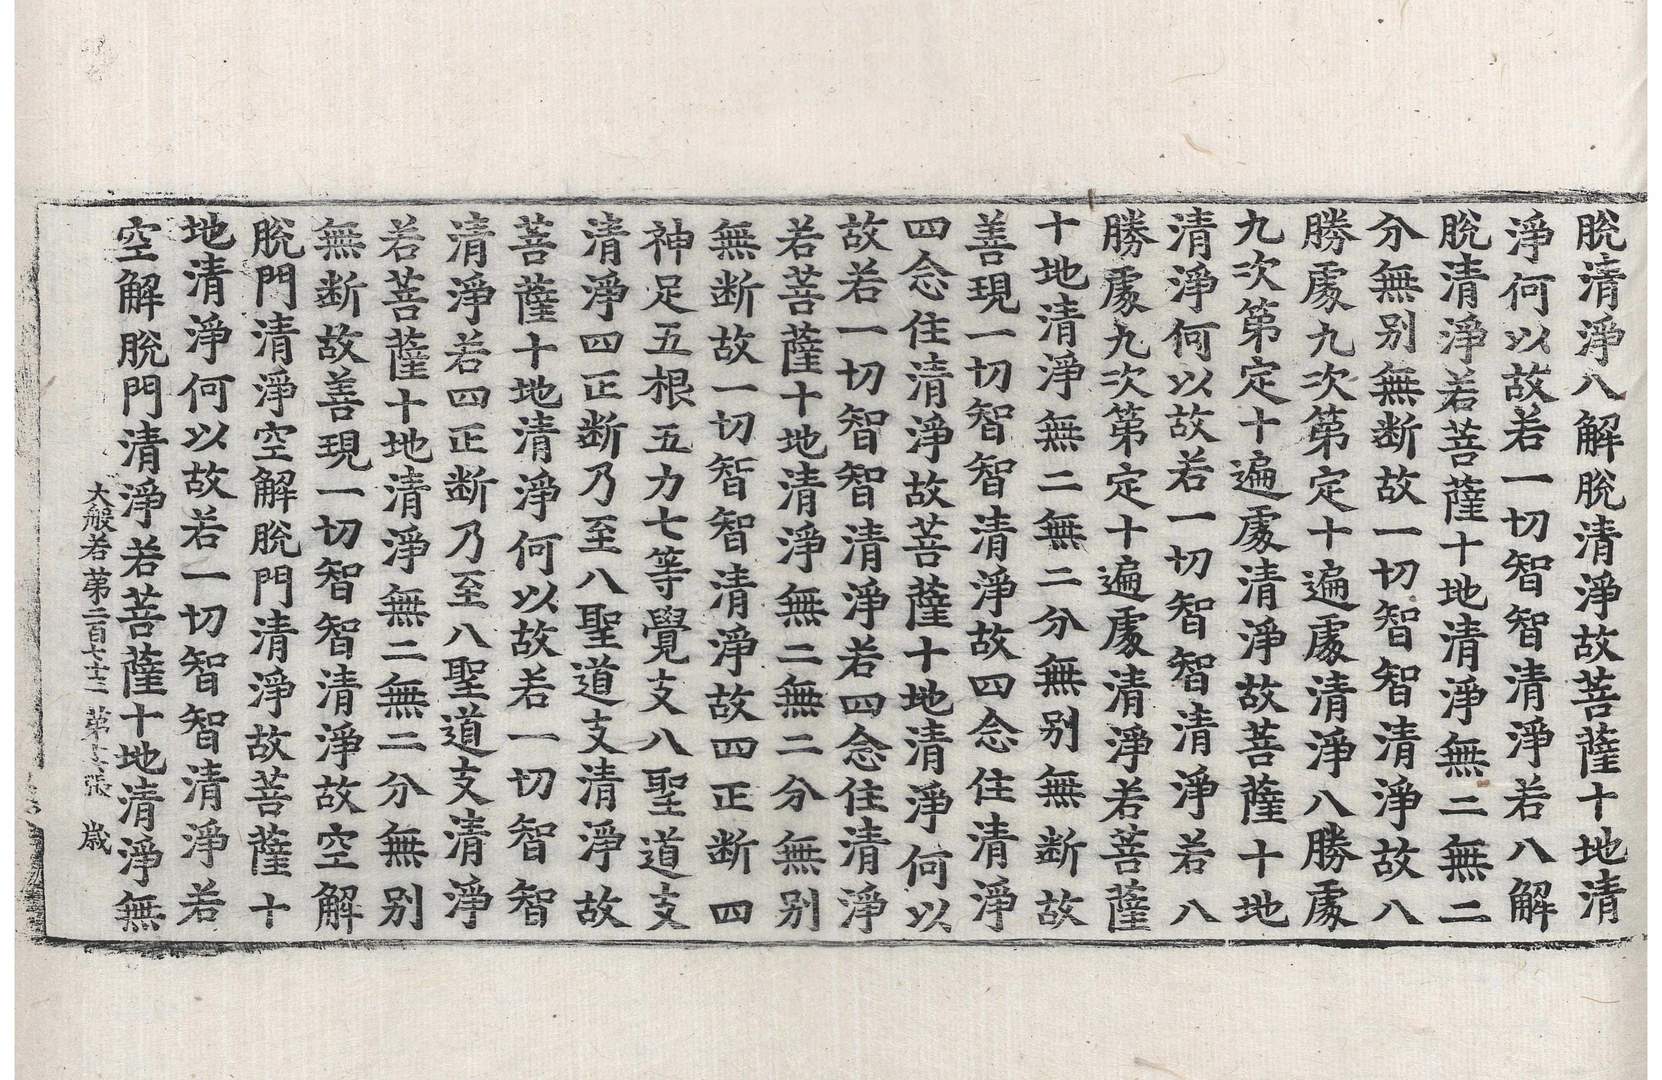 脫清淨八解脫清淨故菩薩十地清
淨何以故若一切智智清淨若八解
脫清淨若菩薩十地清淨無二無二
分無别無断故一切智智清淨故八
勝處九次第定十遍處清淨八勝處
九次第定十遍處清淨故菩薩十地
清淨何以故若一切智智清淨若八
勝處九次第定十遍處清淨若菩薩
十地清淨無二無二分無别無断故
善現一切智智清淨故四念住清淨
四念住清淨故菩薩十地清淨何以
故若一切智智清淨若四念住清淨
若菩薩十地清淨無二無二分無别
無断故一切智智清淨故四正断四
神足五根五力七等覺支八聖道支
清淨四正断乃至八聖道支清淨故
菩薩十地清淨何以故若一切智智
清淨若四正断乃至八聖道支清淨
若菩薩十地清淨無二無二分無别
無断故善現一切智智清淨故空解
脫門清淨空解脫門清淨故菩薩十
地清淨何以故若一切智智清淨若
空解脫門清淨若菩薩十地清淨無
大般若第二百七十二 第 張 歲